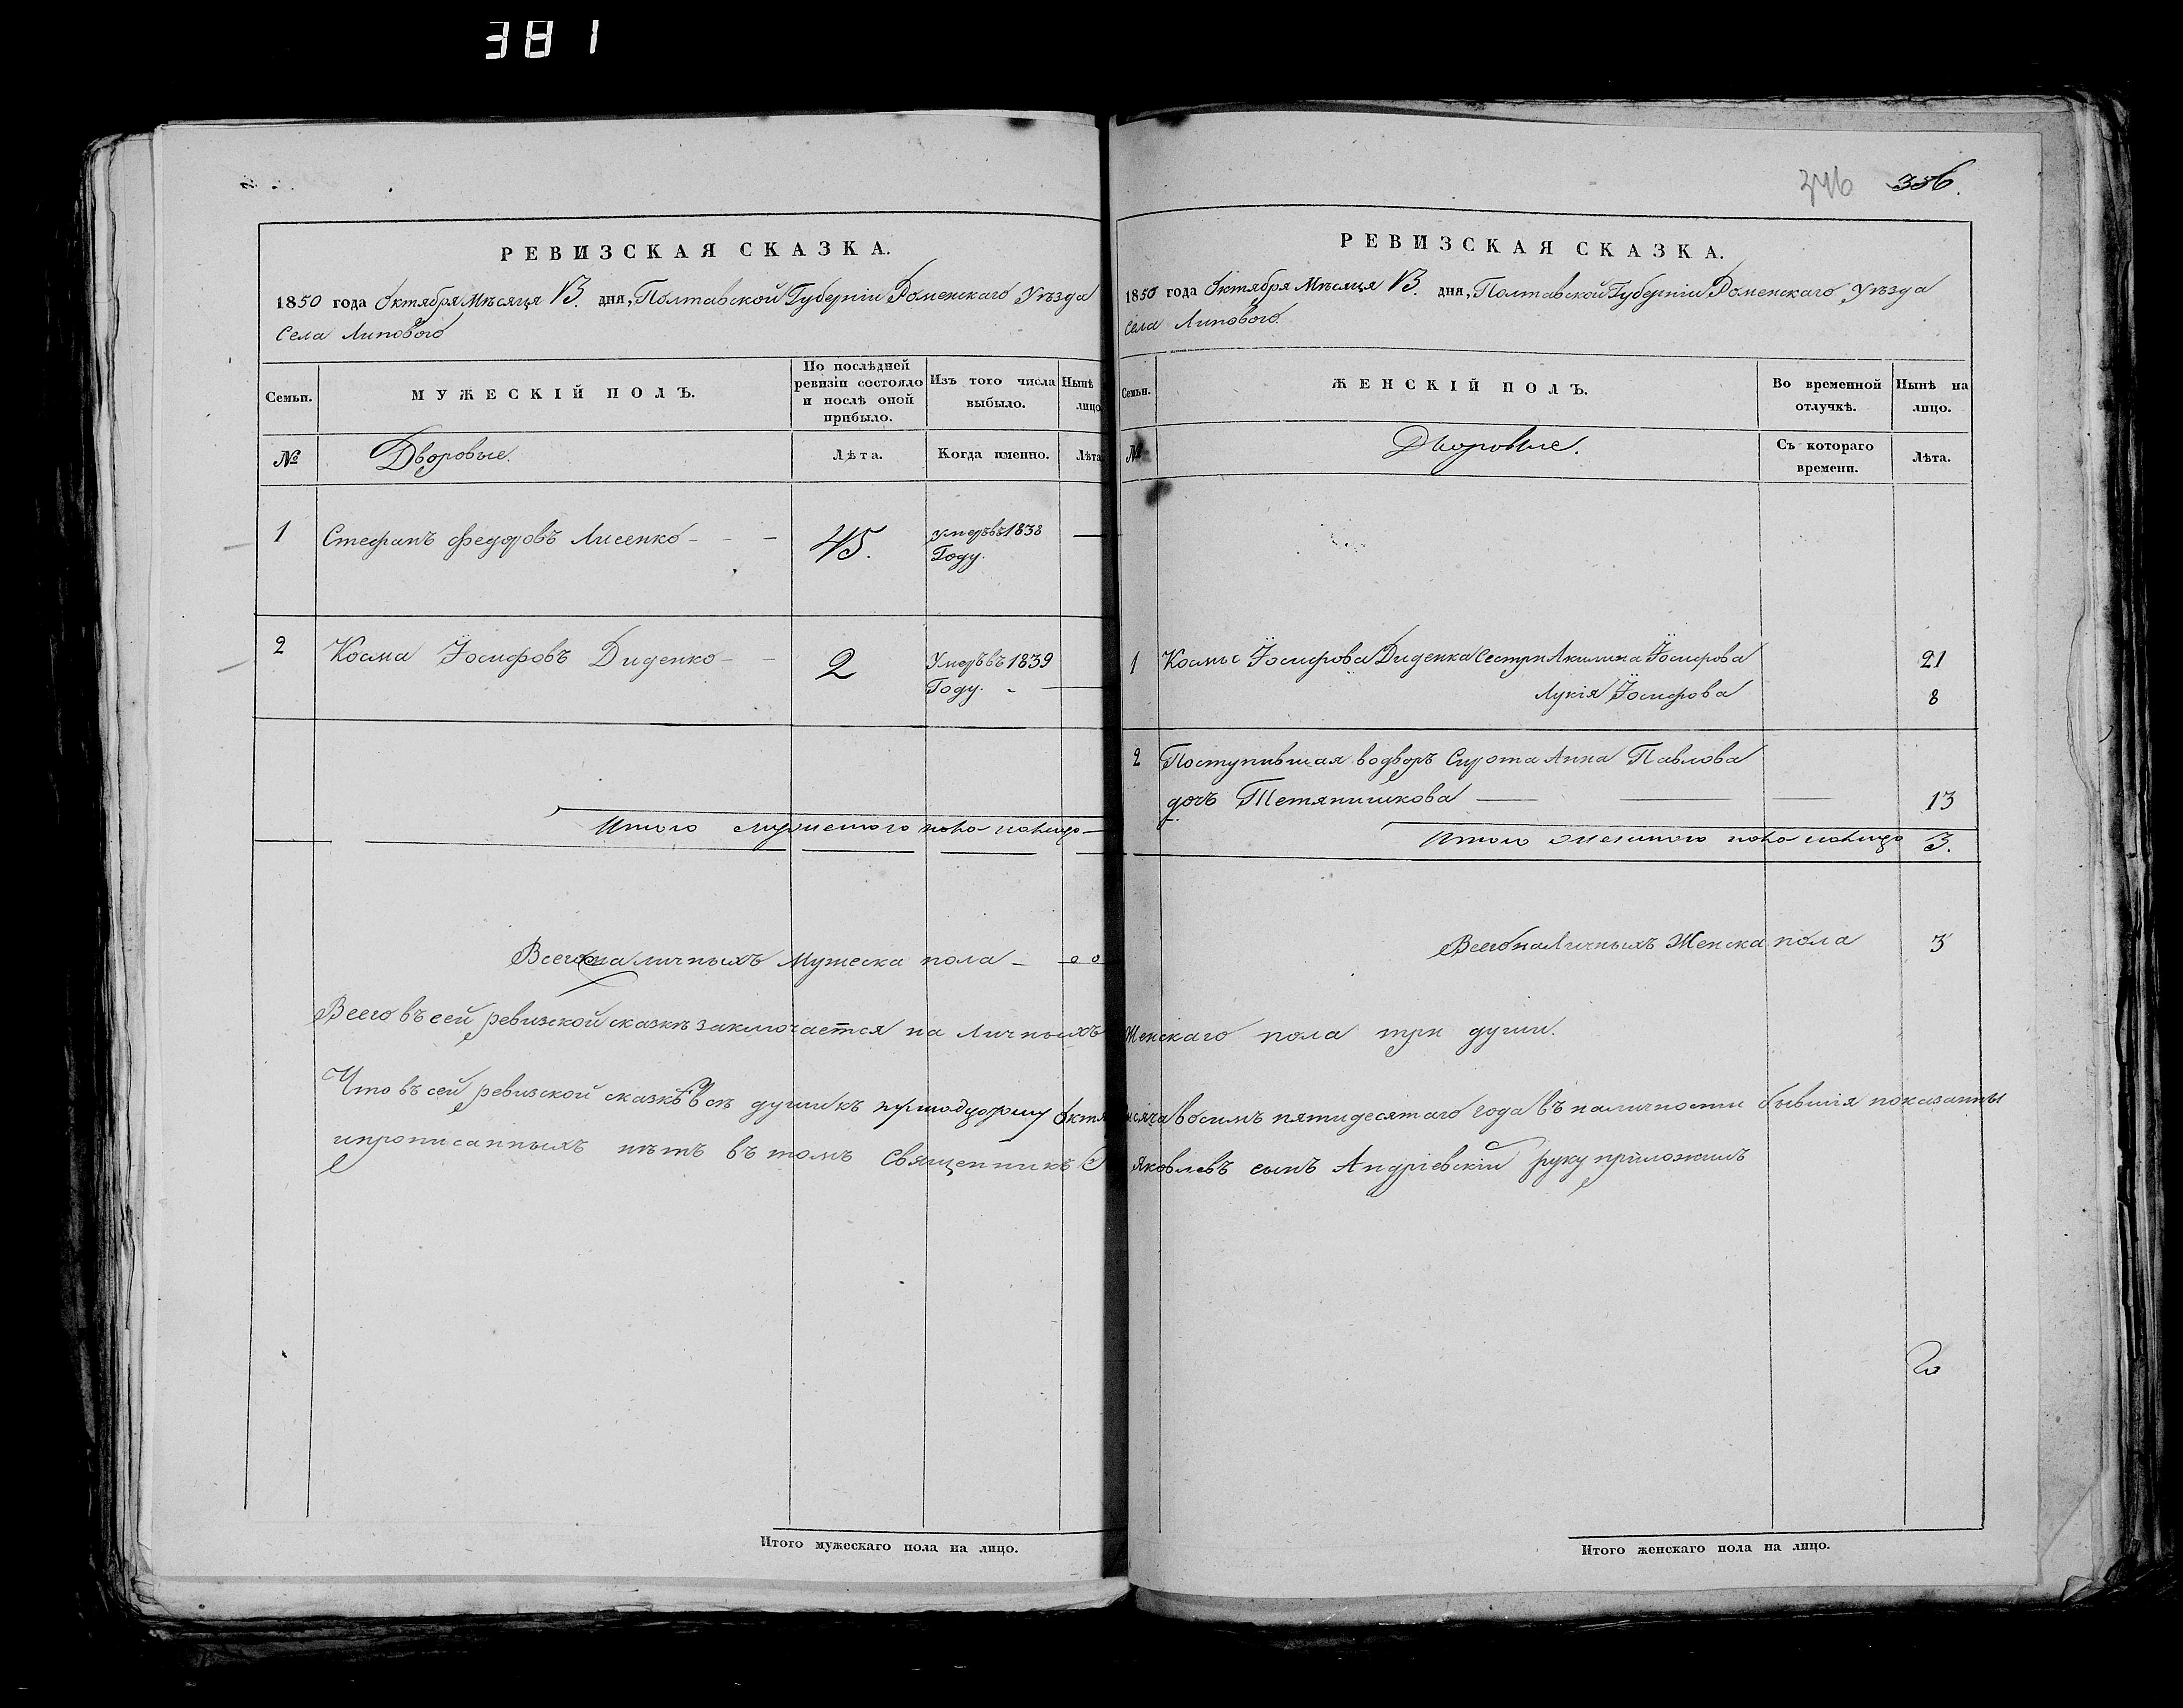 381
346 336.
РЕВИЗСКАЯ СКАЗКА.
1850 года Октября Мѣсяця 13. дня, Полтавской Губерніи Роменскаго Уѣзда
Села Липового
Семьи. МУЖЕСКІЙ ПОЛЪ. По послѣдней ревизіи состояло и послѣ оной прибыло. Изъ того числа выбыло. Нынѣ лицо
№ Дворовые. Лѣта. Когда именно. Лѣта
1 Стефанъ Федоровъ Лисенко - - - 45. умеръ въ 1838
Году. —
2 Косма Іосифовъ Диденко - - 2 Умеръ въ 1839
Году. —
Итого мужеского пола налицо —
Всего наличныхъ Мужеска пола — 00
Всего въ сей ревизской сказкѣ заключается на личныхъ
Что въ сей ревизской сказкѣ всѣ души къ
и прописанныхъ нѣтъ въ томъ Священникъ
Итого мужескаго пола на лицо.
РЕВИЗСКАЯ СКАЗКА.
1850 года Октября Мѣсяця 13. дня, Полтавской Губерніи Роменскаго Уѣзда
Села Липового.
Семьи. ЖЕНСКІЙ ПОЛЪ. Во временной отлучкѣ. Нынѣ на лицо.
№ Дворовые. Съ котораго времени. Лѣта.
1 Космы Іосифова Диденка Сестры Акилина Іосифова 21
Лукія Іосифова 8
2 Поступившая во дворъ Сирота Анна Павлова
дочъ Тетянишкова — — — 13
Итого женского пола налицо 3.
Всего наличныхъ Женска пола 3
Женскаго пола три души.
восимъ пятидесятаго года въ наличности бывшія показанны
Яковлевъ сынъ Андріевскій руку приложилъ
Итого женскаго пола на лицо.